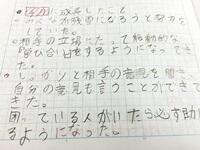 に成長したこと
•みんなが残雪になろうと努力を
していた。
•相手の立場にたって能動的な
「学び合い」をするようになってき
た。
•しっかりと相手の意見を聞き、
自分の意見も言うことができて
きた。
困っている人がいたら必ず助け
るようになった。